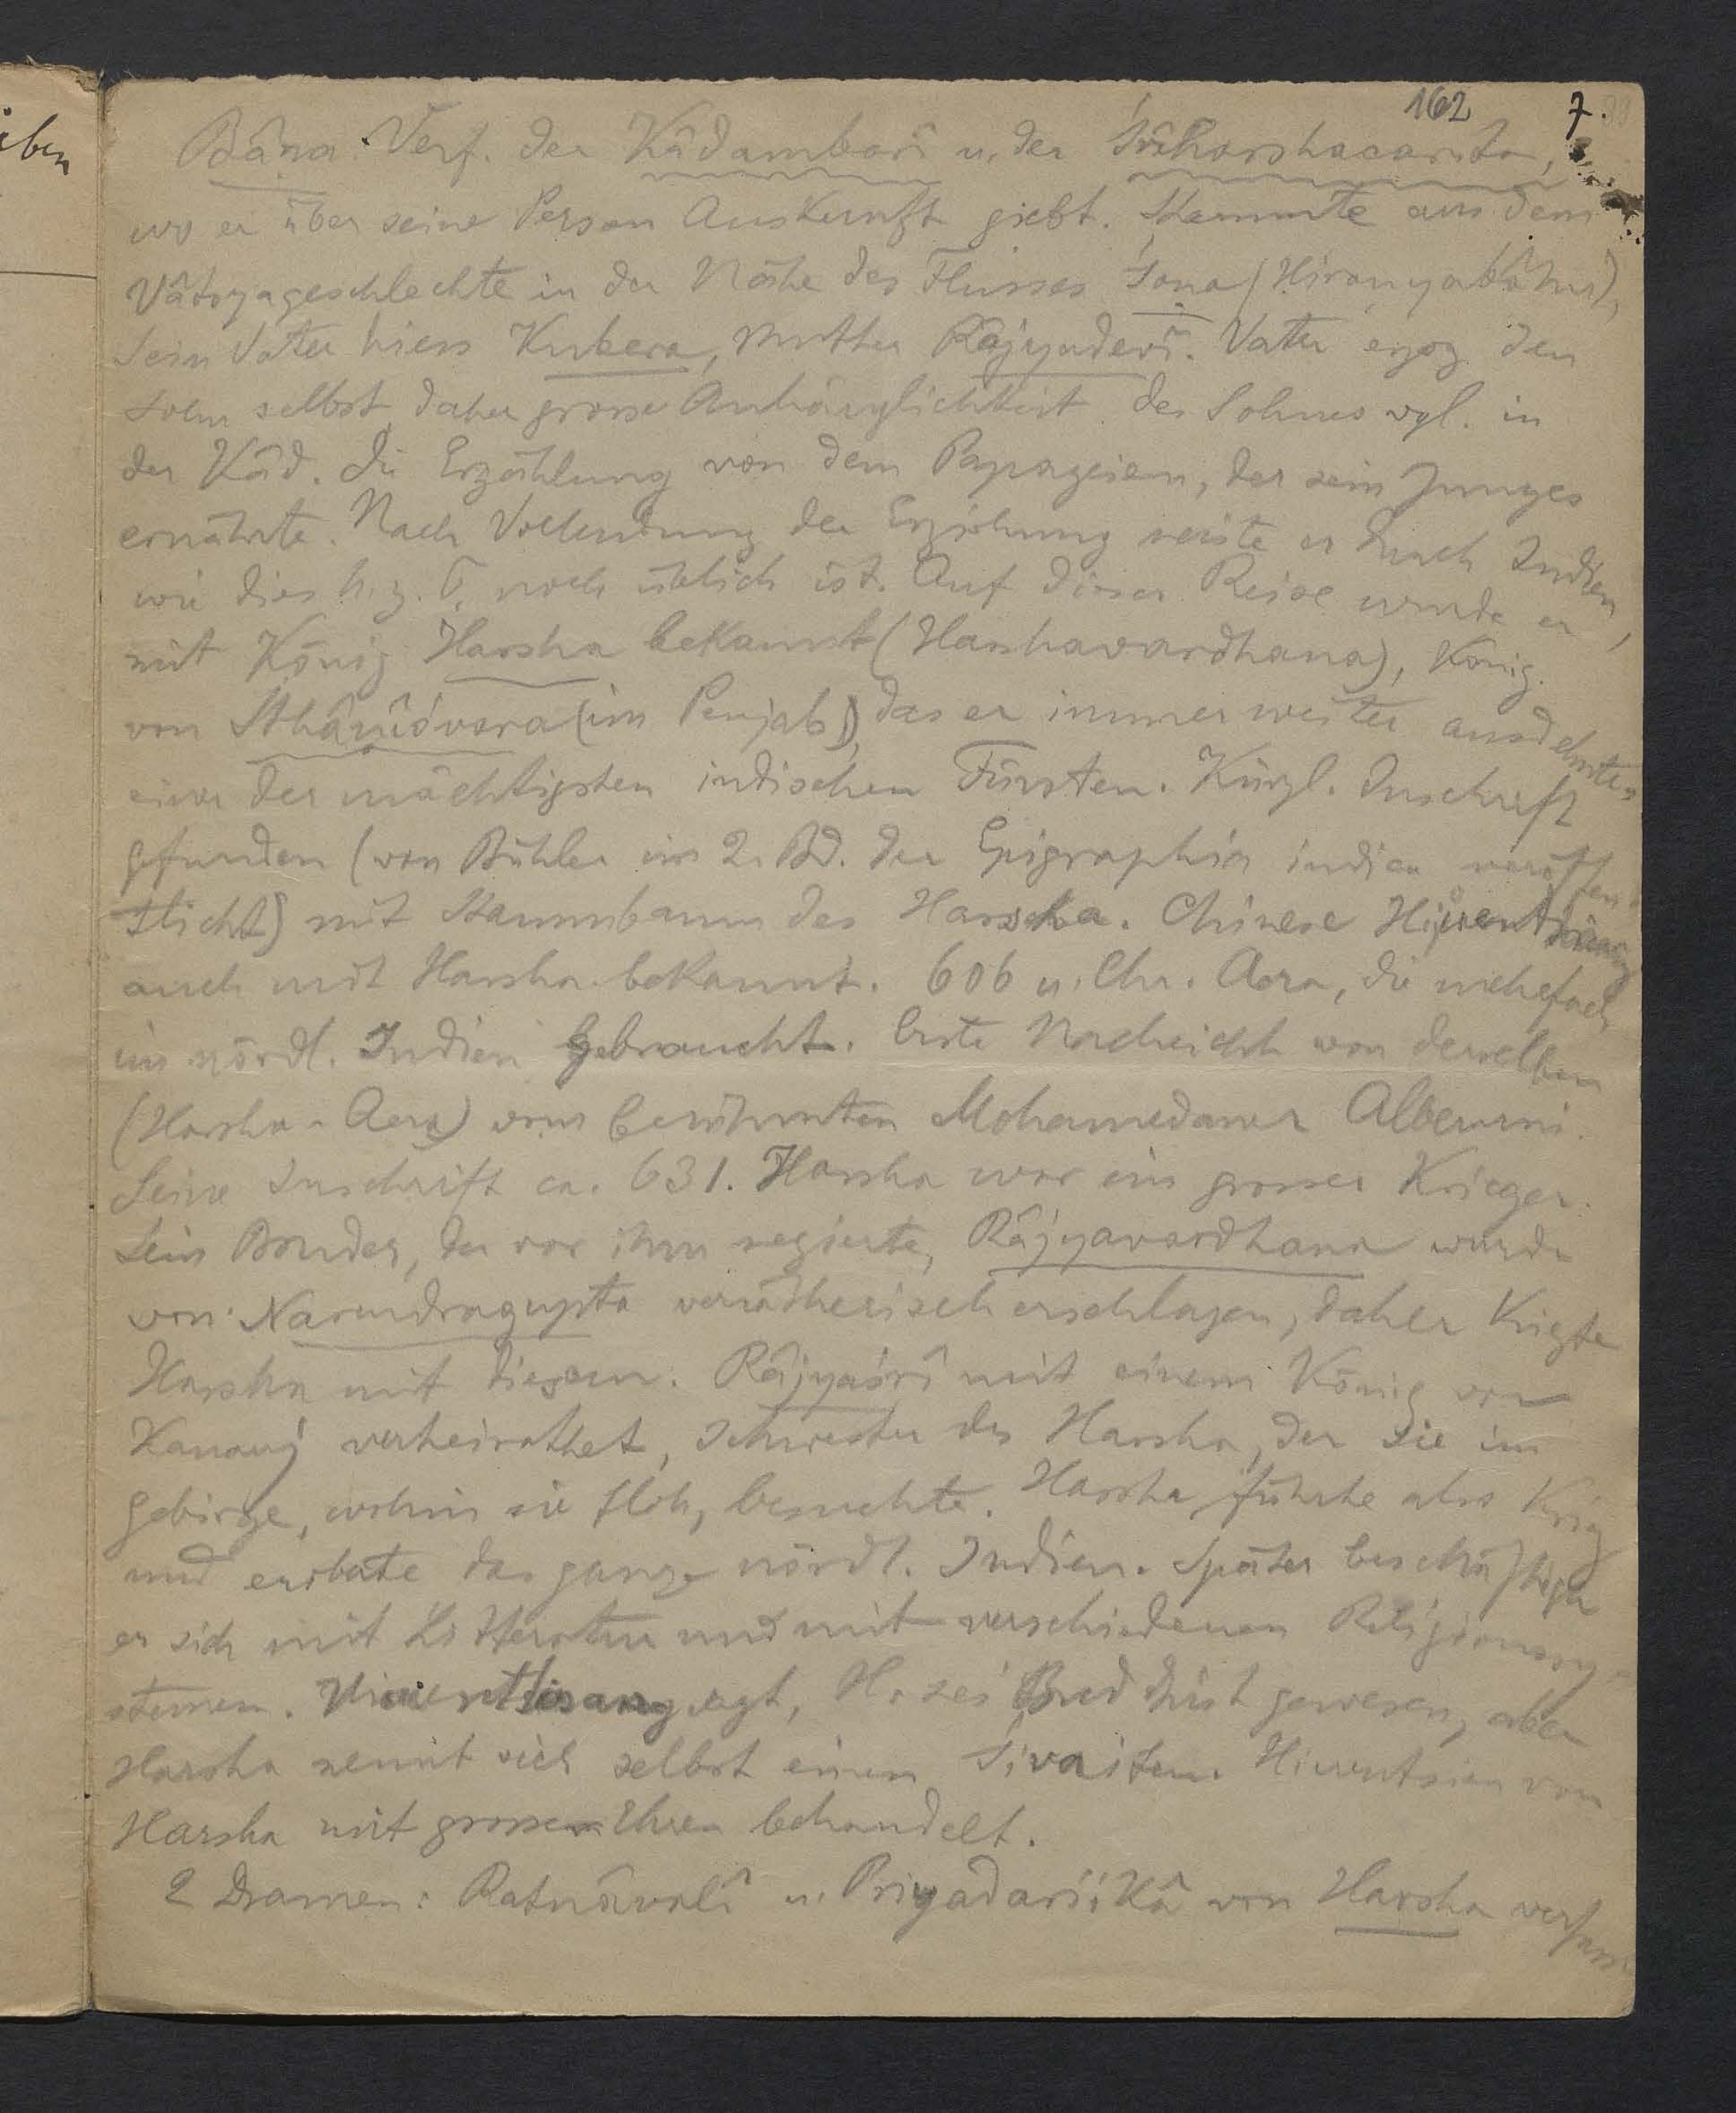 iben
162 7.
Bâṇa. Verf. der Kâdambarî u. der Śrîharshacarita,
wo er über seine Person Auskunft giebt. Stammte aus dem
Vâtsyageschlechte in der Nähe des Flusses Śoṇa (Hiraṇyabâhu),
Sein Vater hiess Kubera, Mutter Râjyadevî. Vater erzog den
Sohn selbst, daher grosse Anhänglichkeit des Sohnes vgl. in
der Kâd. die Erzählung von dem Papageien, der sein Junges
ernährte. Nach Vollendung der Erziehung reiste er durch Indien,
wie dies h. z. T. noch üblich ist. Auf dieser Reise wurde er
mit König Harsha bekannt (Harshavardhana), König
von Sthâṇîśvara (im Penjab), das er immer weiter ausdehnte,
einer der mächtigsten indischen Fürsten. Kürzl. Inschrift
gefunden (von Bühler im 2. Bd. der Epigraphia indica veröffen
tlicht) mit Stammbaum des Harsha. Chinese Hiuentsiang
auch mit Harsha bekannt. 606 n. Chr. Aera, die mehrfach
im nördl. Indien gebraucht. Erste Nachricht von derselben
(Harsha-Aera) vom berühmten Mohamedaner Alberuni.
Seine Inschrift ca. 631. Harsha war ein grosser Krieger.
Sein Bruder, der vor ihm regierte, Râjyavardhana wurde
von Narendragupta verrätherisch erschlagen, daher kriegte
Harsha mit diesem. Râjyaśrî mit einem König von
Kanauj verheirathet, Schwester des Harsha, der sie im
Gebirge, wohin sie floh, besuchte. Harsha führte also Krieg
und eroberte das ganze nördl. Indien. Später beschäftigte
er sich mit Litteratur und mit verschiedenen Religionssy-
stemen. Hiuentsang sagt, H. sei Buddhist gewesen, aber
Harsha nennt sich selbst einen Śivaiten. Hiuentsien von
Harsha mit grossen Ehren behandelt.
2 Dramen: Ratnâvalî u. Priyadarśikâ von Harsha verfasst